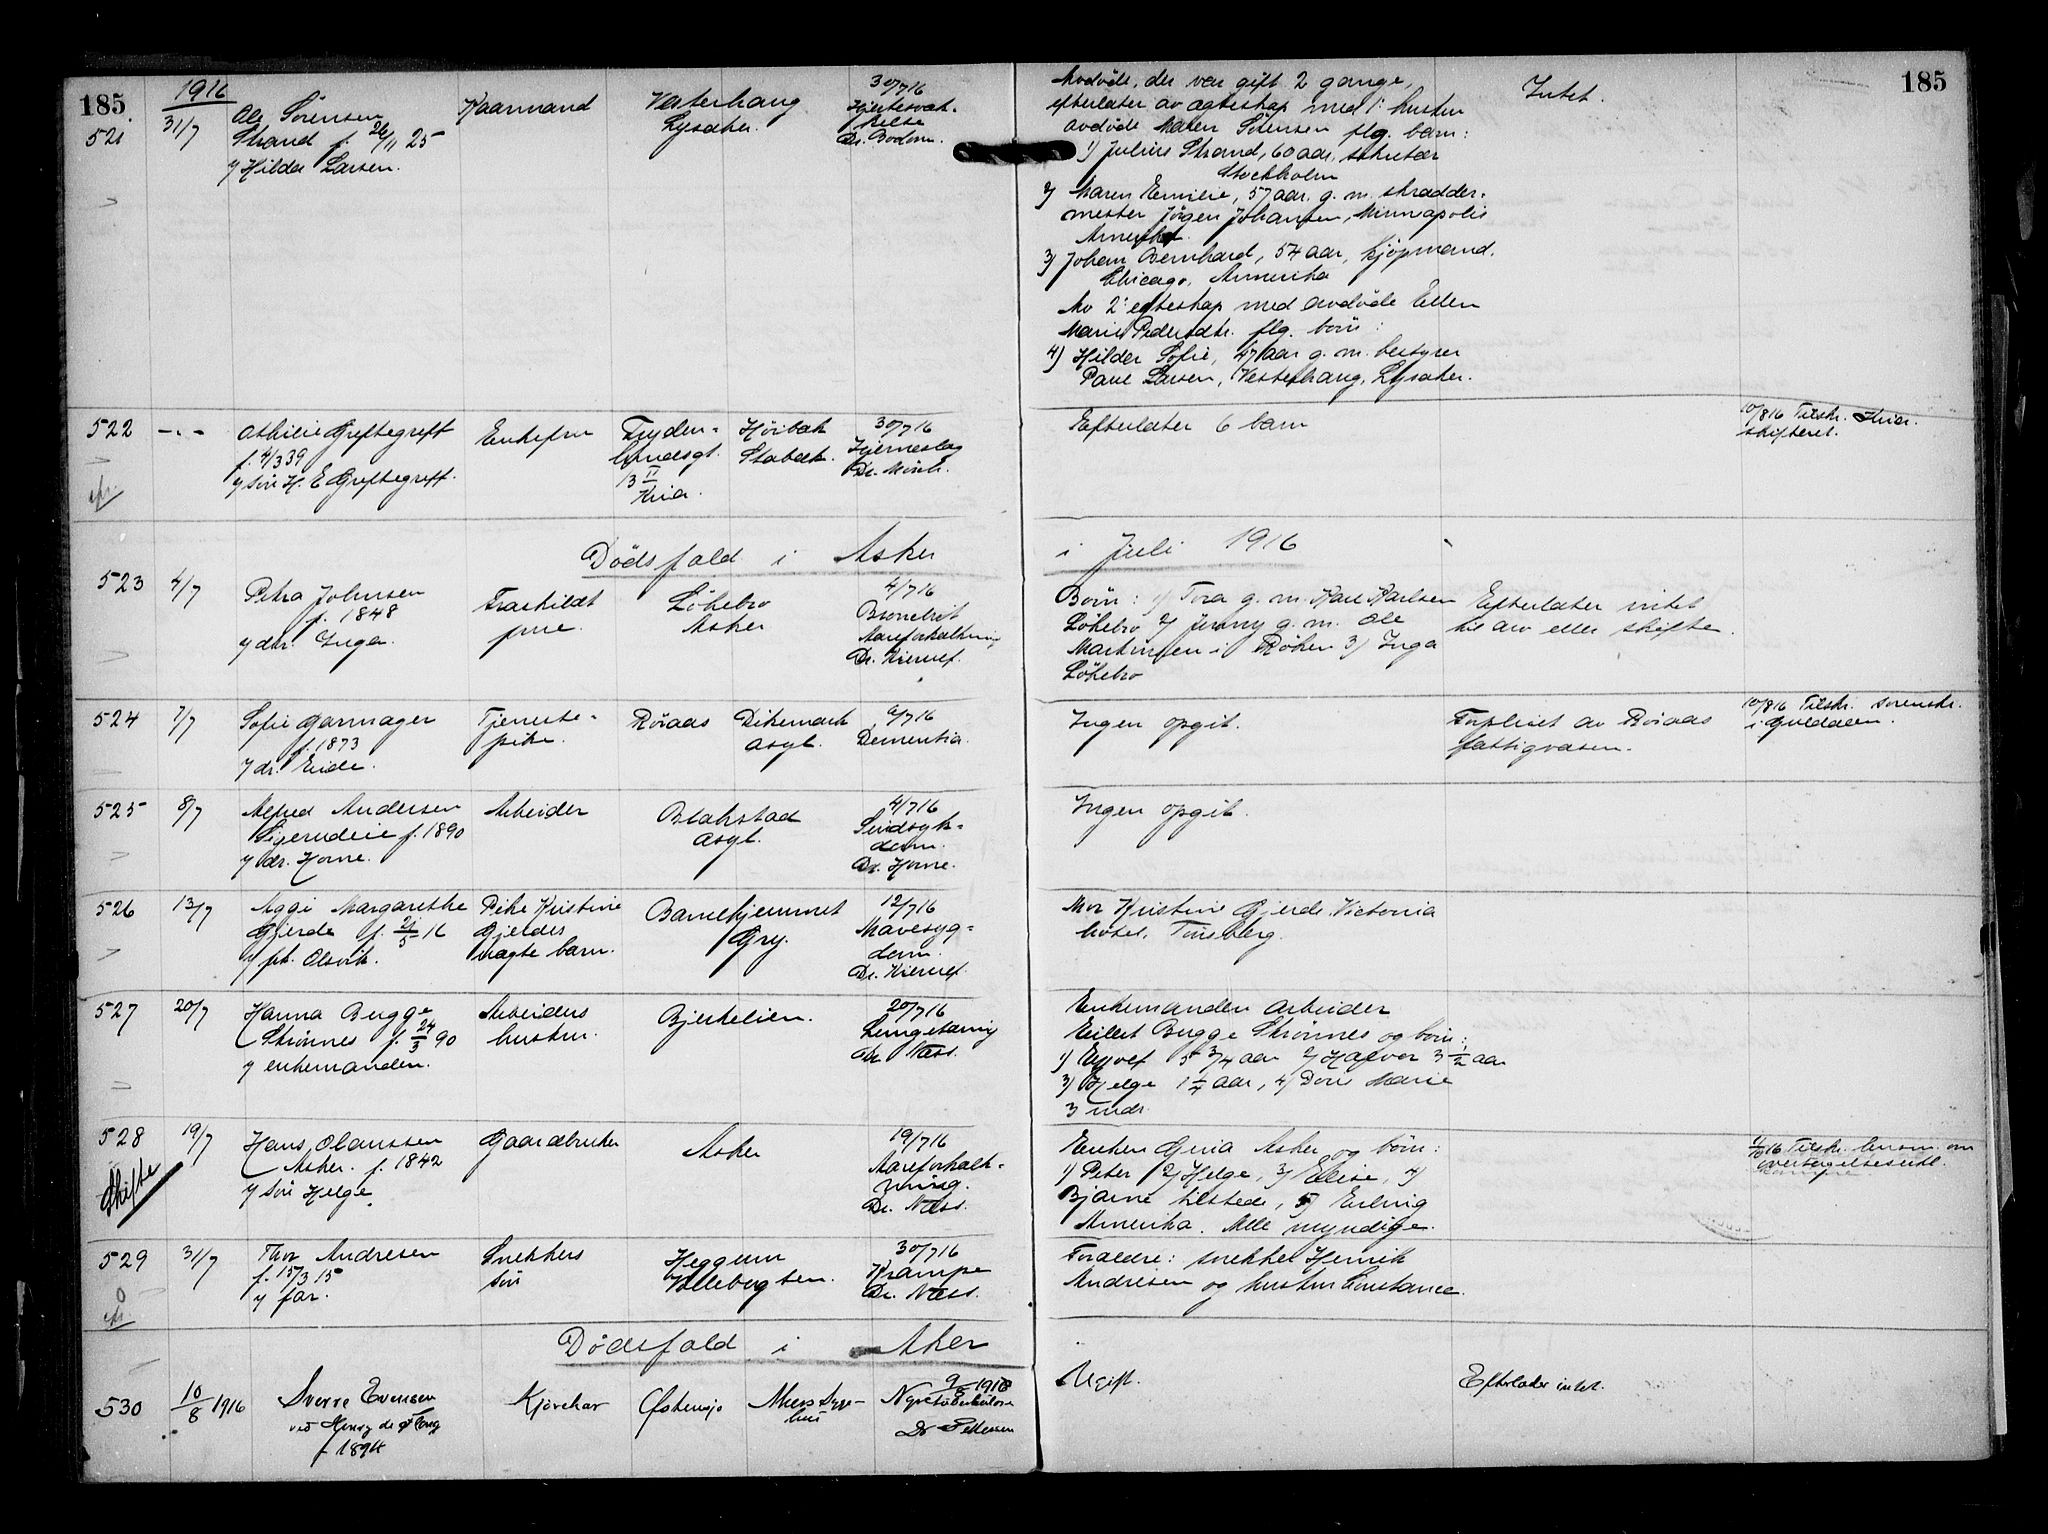 185.
1916
521
31/7
Ole Sørensen
Strand f. 26/11 25
v/ Hilda Larsen.
Kaarmand
Vesterhaug
Lysaker.
30/7 16
Dr. Bodom.
Avdöde, der var gift 2 gange,
efterlater av ægteskap med 1' hustru
avdöde Maren Sörensen flg. barn:
1) Julius Strand, 60 aar, sekretær
Stockholm
2) Maren Emilie, 57 aar. g. m. skrædder-
mester Jörgen Johansen, Minneapolis
Amerika.
3) Johan Bernhard, 54 aar, kjöpmand.
Chicago, Amerika
Av 2' egteskap med avdöde Ellen
Marie Pedersdtr. flg. barn:
4) Hilda Sofie, 47 aar g. m. bestyrer
Paul Larsen, Vesterhaug, Lysaker.
Intet.
185
522
-"-
Othilie Greftegreff
f. 4/3 39
v/ sön H. E. Greftegreff.
Enkefru
Fryden-
lundsgt.
13 II
Kria.
Höibak
Stabæk.
30/7 16
Hjerneslag
Dr. Münch.
Efterlater 6 barn
10/8 16 Tilskr. Kria.
skifteret.
Dödsfald i Asker
i Juli 1916
523
4/7
Petra Johnsen
f. 1848
v/ dtr. Inga.
Fraskildt
frue.
Lökebro
Asker
4/7 16
Bronchit
Aareforkalkning
Dr. Kierulf.
Börn: 1) Tora g. m. Karl Karlsen
Lökebro 2) Jenny g. m. Ole
Martinsen i Röken 3) Inga
Lökebro
Efterlater intet
til arv eller skifte.
524
7/7
Sofie Garmager
f. 1873
v/ dr. Eide.
Tjeneste-
pike.
Röraas
Dikemark
asyl.
6/7 16
Dementia.
Ingen opgit.
Forpleiet av Röraas
fattigvæsen.
10/8 16 Tilskr. sorenskr.
i Guldalen.
525
8/7
Alfred Andersen
f. 1890
v/ dr. Horne.
Arbeider
Blakstad
asyl.
4/7 16
Sindsyk-
dom.
Dr. Horne.
Ingen opgit.
526
13/7
Aggi Margarethe
Gjerde f. 21/5 16
v/ frk. Olsvik.
Pike Kristine
Gjerdes
uægte barn.
Barnehjemmet
Gry.
12/7 16
Mavesyg-
dom.
Dr. Kierulf.
Mor Kristine Gjerde Victoria
hotel. Tönsberg.
527
20/7
Hanna Bugge
Strönnes f. 24/3 90
v/ enkemanden.
Arbeiders
hustru.
Bjerkelien.
20/7 16
Lungetæring
Dr. Næss.
Enkemanden arbeider
Eilert Bugge Strönnes og börn:
1) Eyvol 5 3/4 aar 2) Halvor 3 1/2 aar
3) Helge 1 1/4 aar, 4) Doris Marie
3 mdr.
528
Skifte
19/7
Hans Olaussen
Asker. f. 1842
v/ sön Helge.
Gaardbruker
Asker
19/7 16
Aareforkalk-
ning.
Dr. Næss.
Enken Gina Asker og börn:
1) Peter 2) Helge, 3) Elise, 4)
Bjarne tilstede, 5) Erling
Amerika. Alle myndige.
Tilskr. lensm. om
529
31/7
Thor Andresen
f. 15/3 15
v/ far.
Snekkers
sön
Heggum
Vollebugten.
30/7 16
Krampe
Dr. Næss.
Forældre: snekker Henrik
Andresen og hustru Constance.
Dödsfald i Aker
530
10/8 1916
Sverre Evensen
ved Henry de Flong
f 1894
Kjörekar
Østensjö
Akers Syge-
hus
9/8 1916
Nyretuberkulose
Dr Pettersen
Ugift.
Efterlader intet.